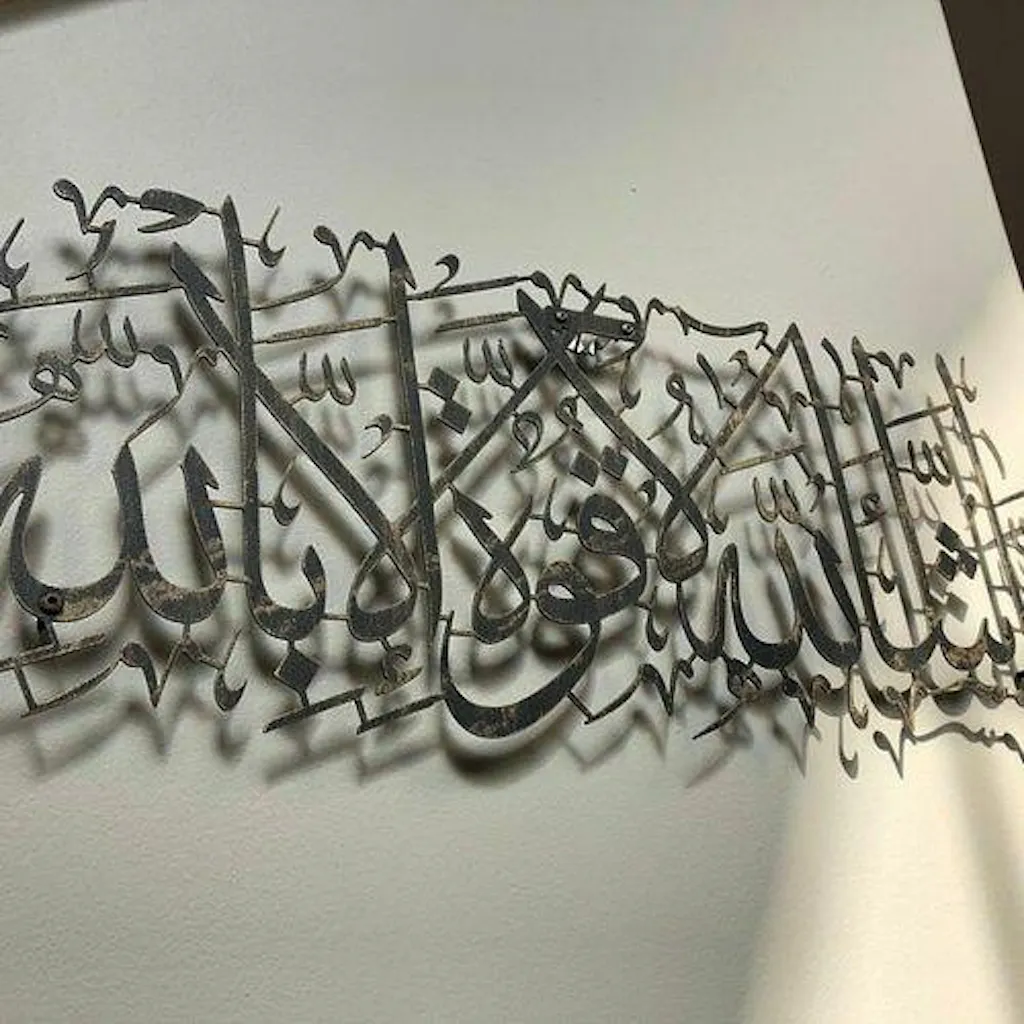 شاء الله لا قوة إلا بالله